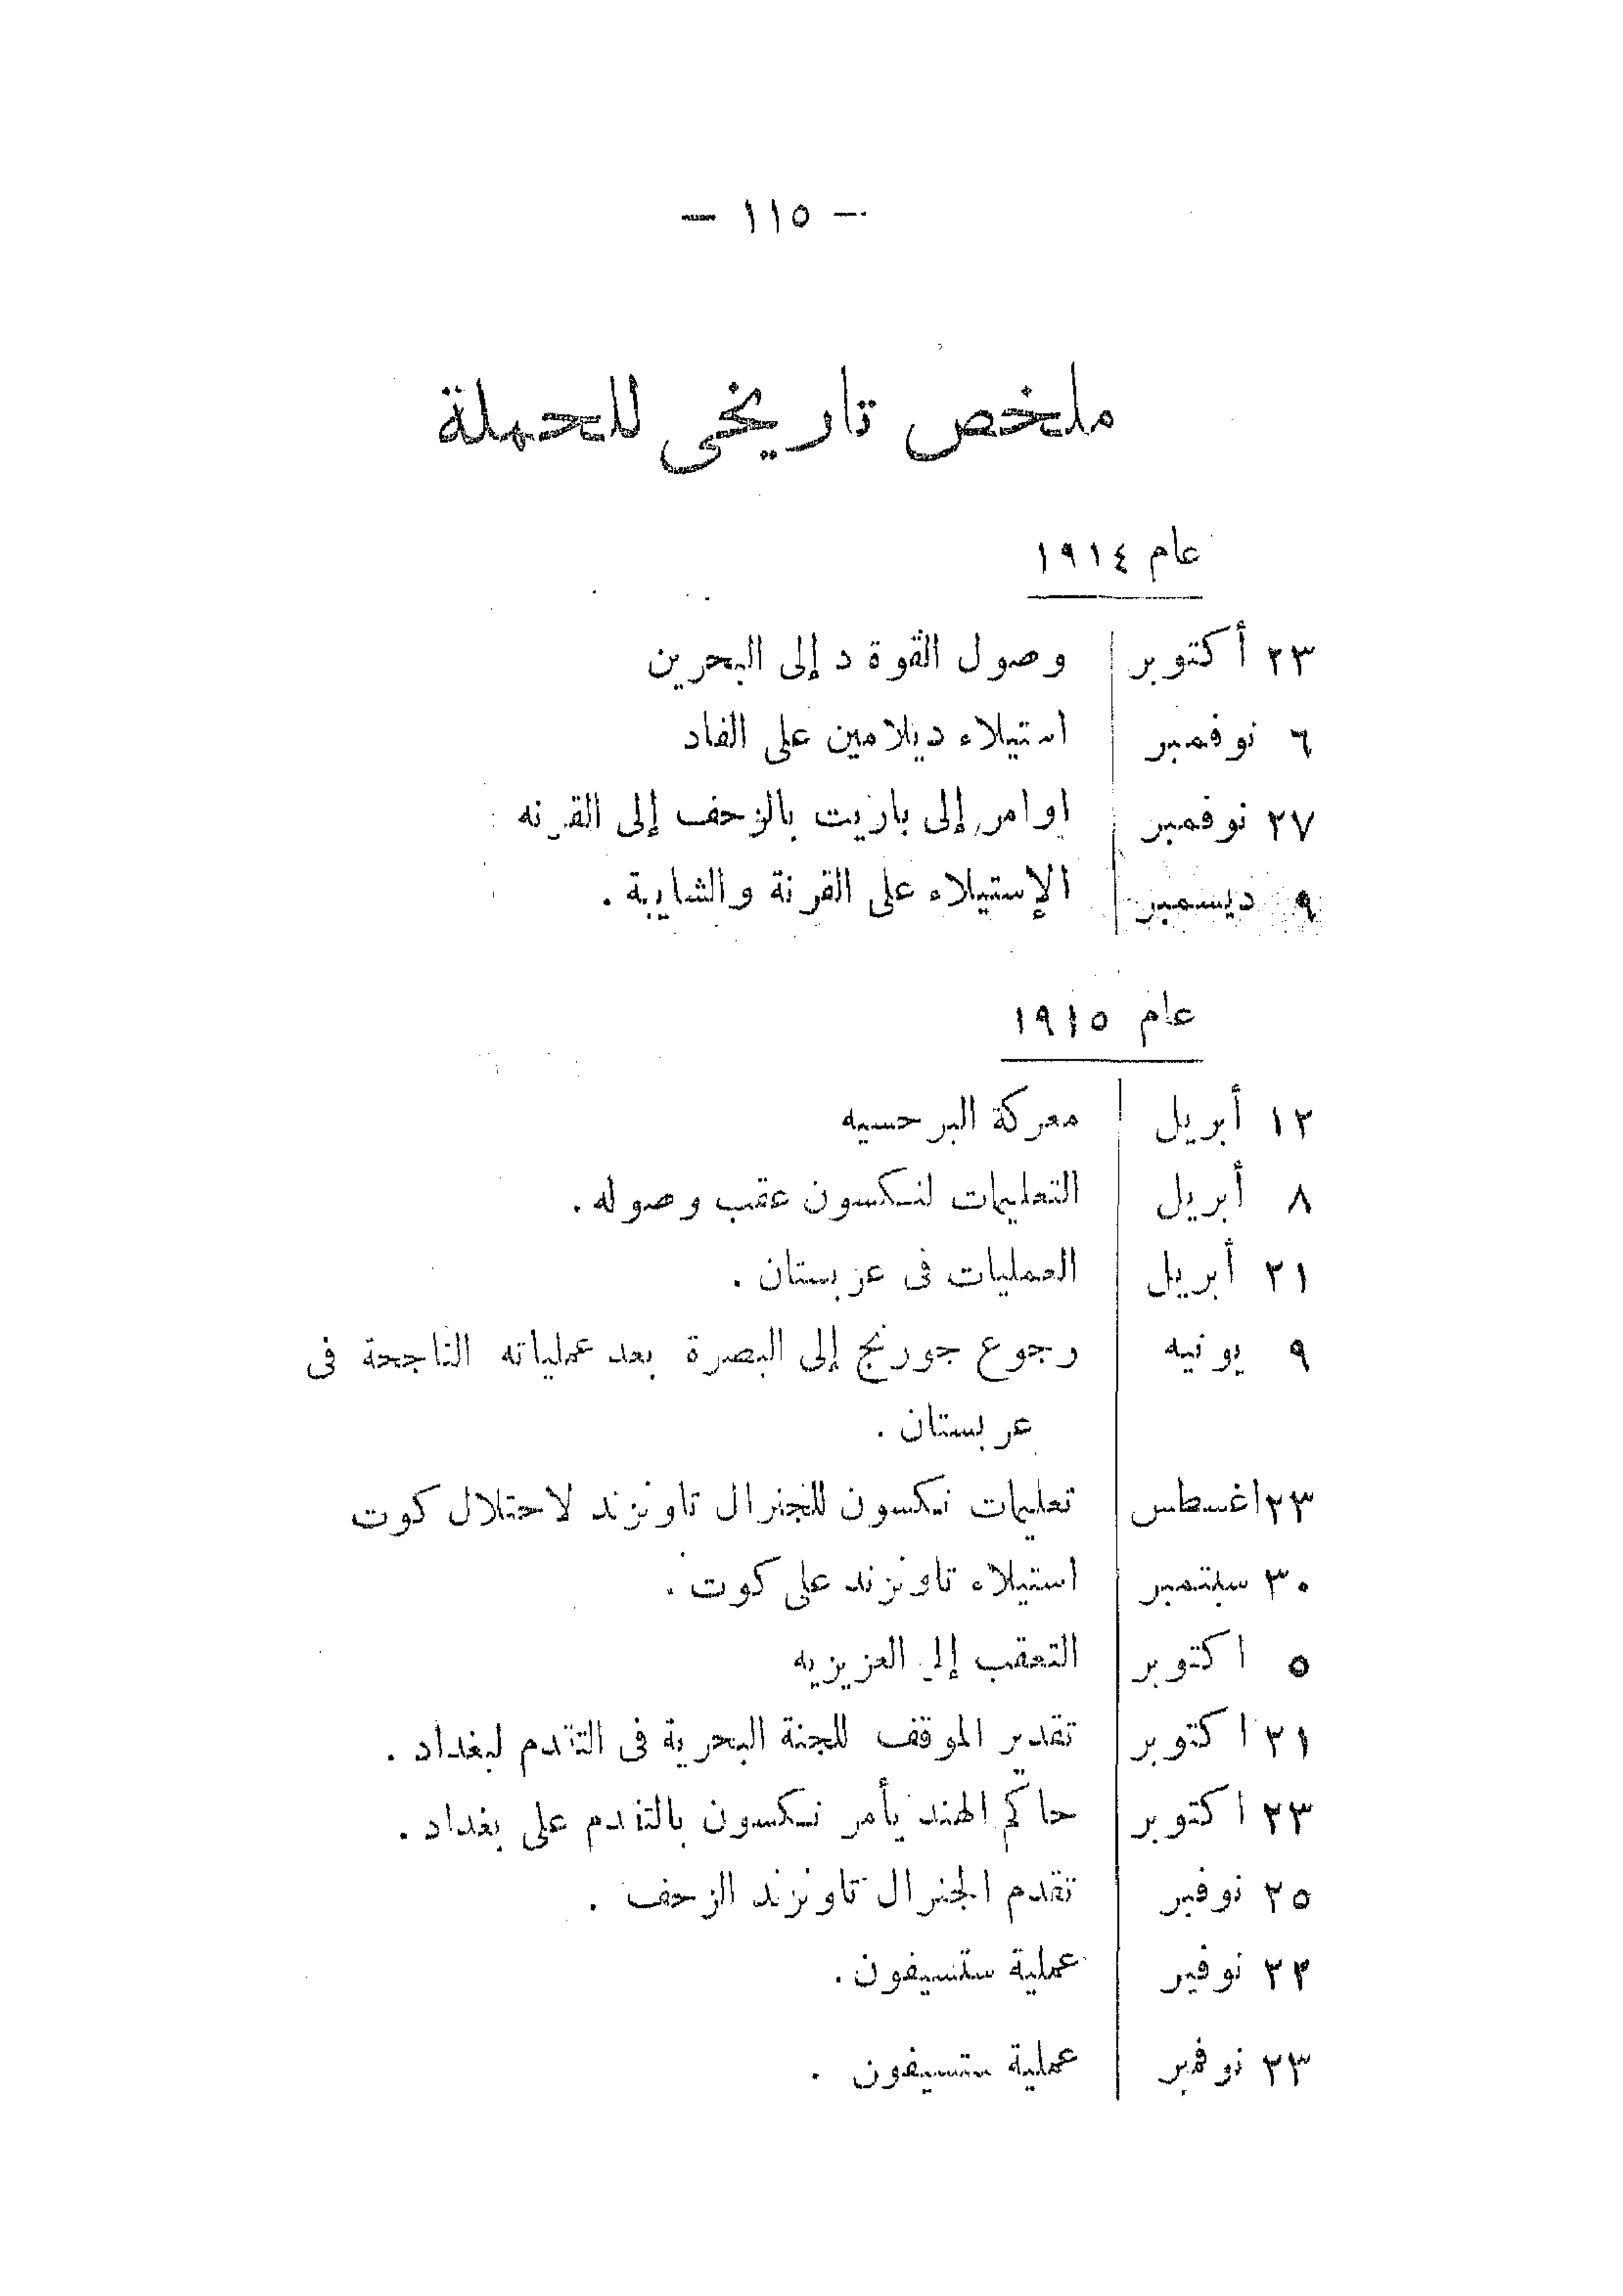 — ١١٥ —
ملخص تاريخى للحملة
عام ١٩١٤
٢٣ أكتوبر وصول القوة د إلى البحرين
٦ نوفمبر استيلاء ديلامين على الفاد
٢٧ نوفمبر اوامر إلى باريت بالزحف إلى القرنه
٩ ديسمبر الإستيلاء على القرنة والشايبة .
عام ١٩١٥
١٢ أبريل معركة البرحسيه
٨ أبريل التعليمات لنكسون عقب وصوله .
٢١ أبريل العمليات فى عربستان .
٩ يونيه رجوع جورنج إلى البصرة بعد عملياته الناجحة فى
عربستان .
٢٣ اغسطس تعليمات نيكسون للجنرال تاونزند لاحتلال كوت
٣٠ سبتمبر استيلاء تاونزند على كوت .
٥ اكتوبر التعقب إلى العزيزيه
٢١ اكتوبر تقدير الموقف للجنة البحرية فى التقدم لبغداد .
٢٣ اكتوبر حاكم الهند يأمر نكسون بالتقدم على بغداد .
٢٥ نوفمبر تقدم الجنرال تاونزند الزحف .
٢٢ نوفمبر عملية ستسيفون .
٢٣ نوفمبر عملية ستسيفون .